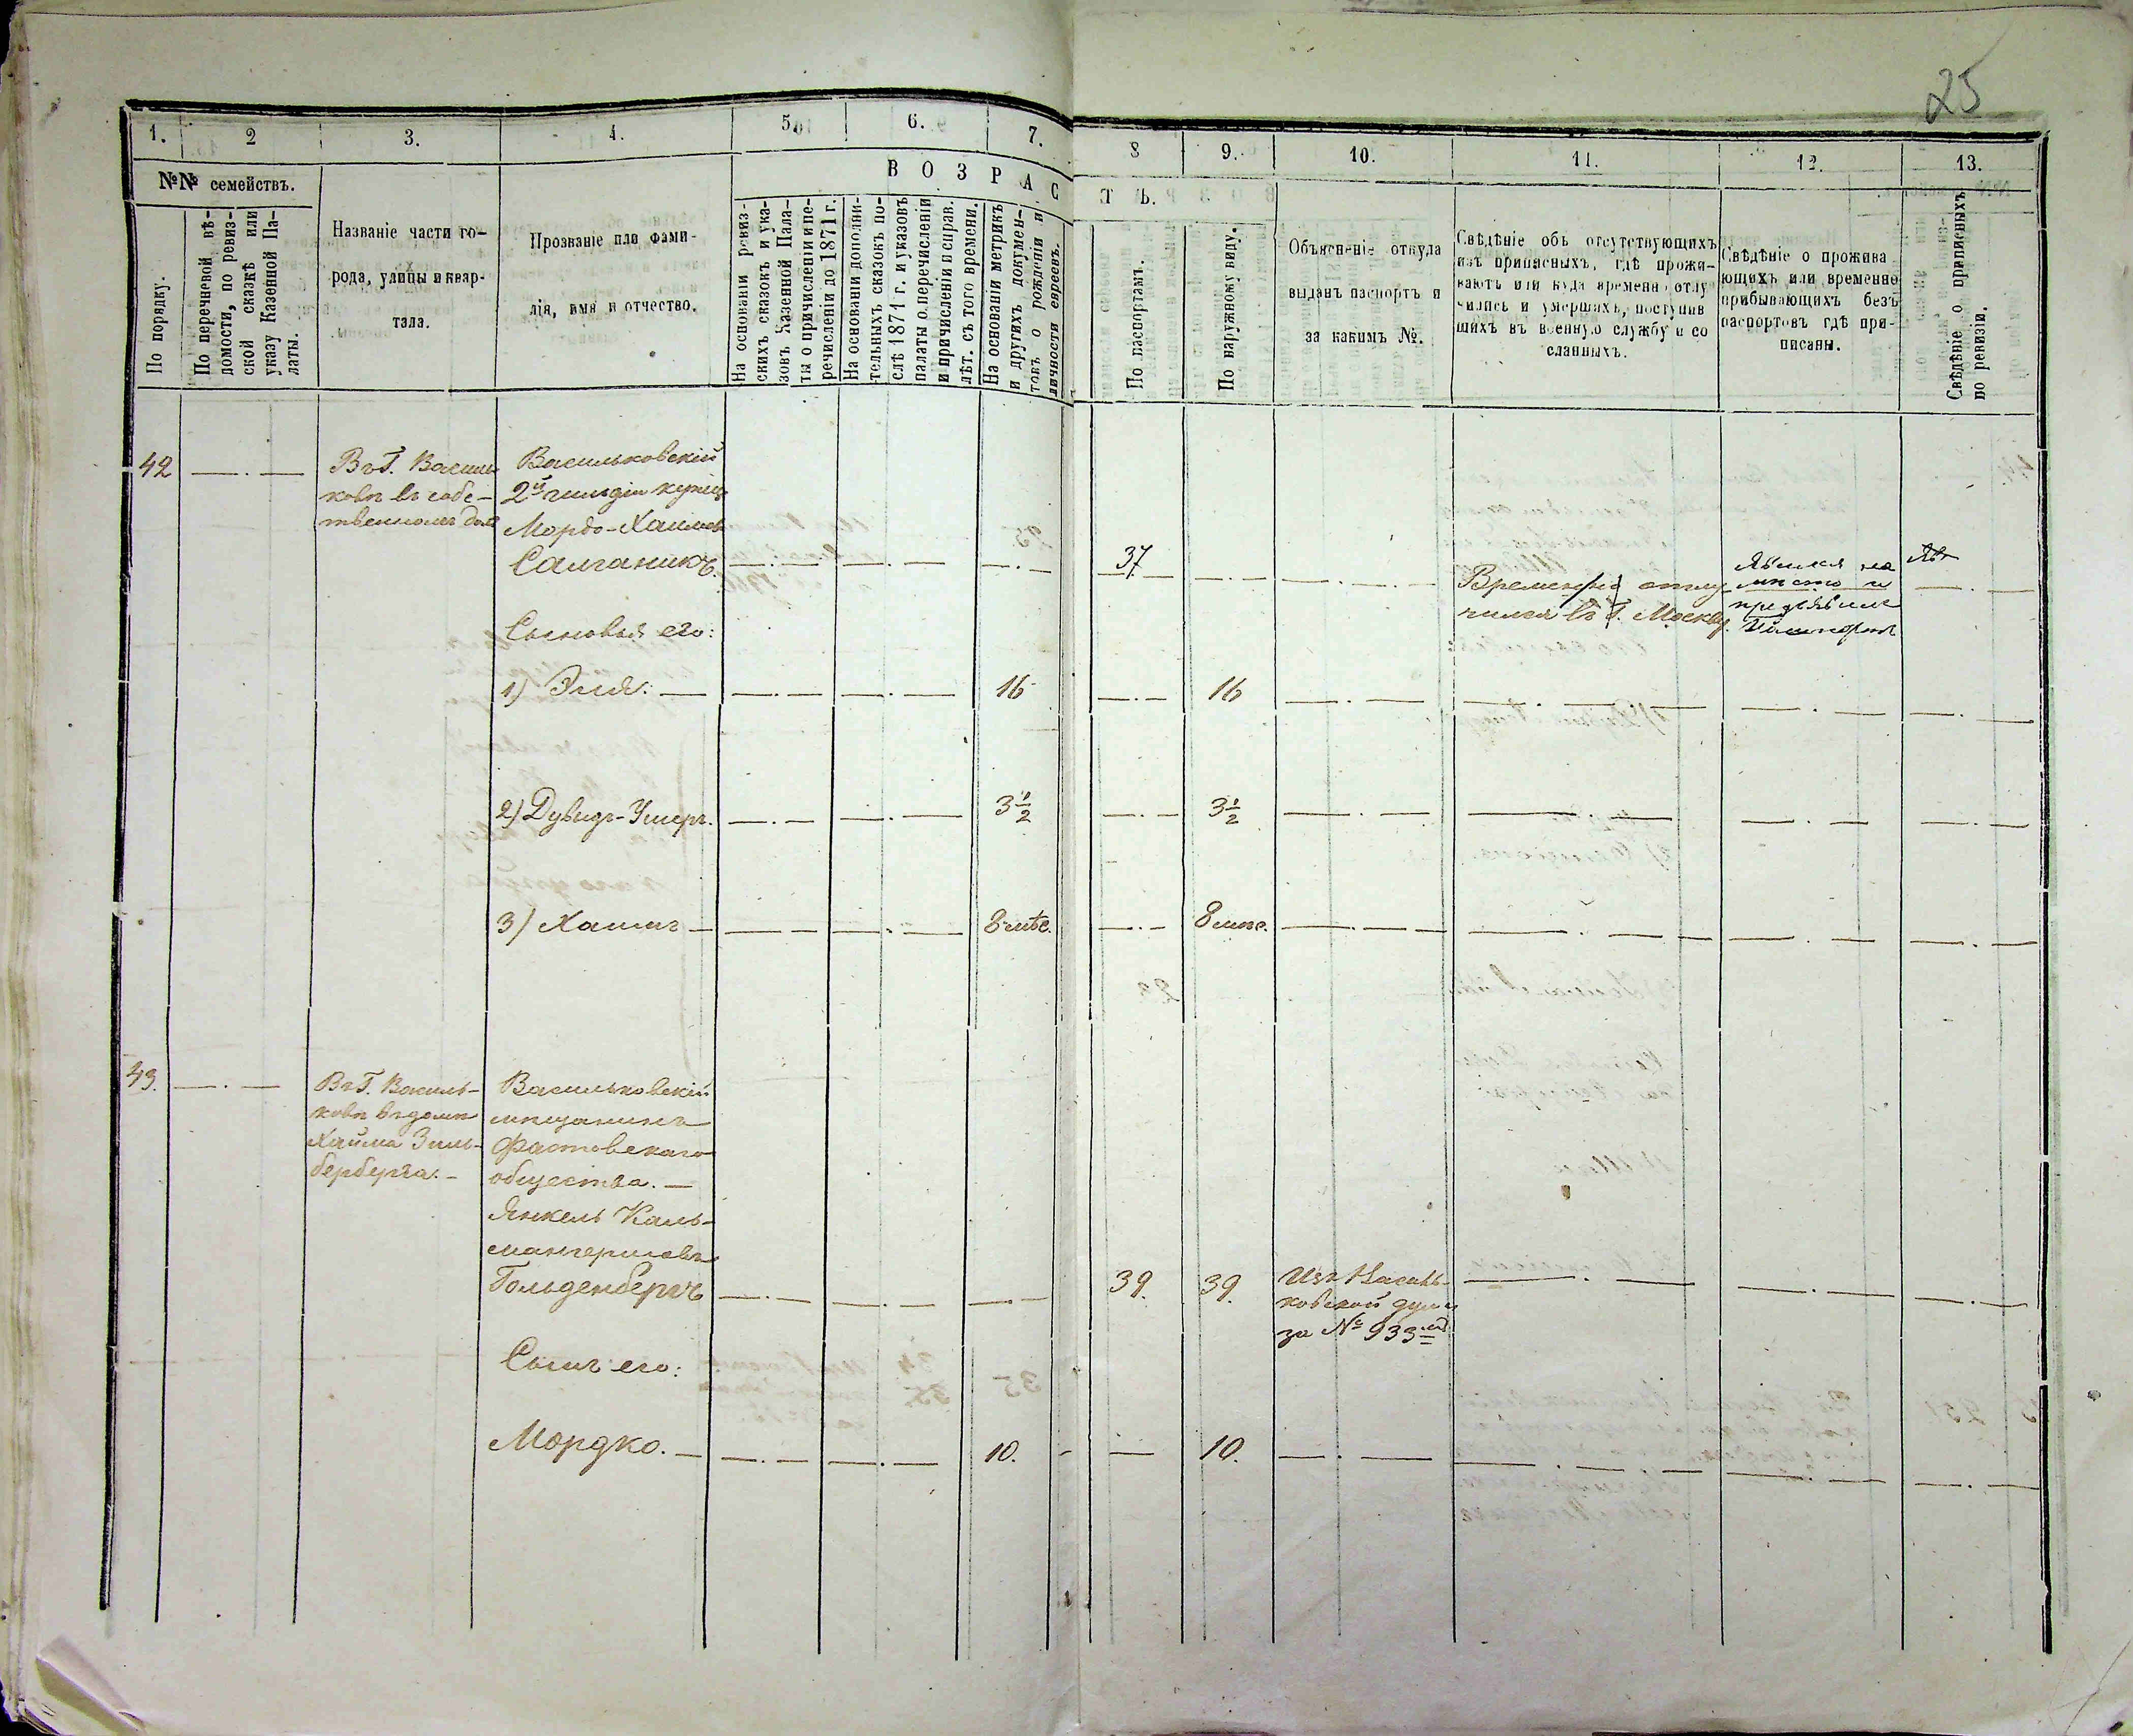 25
1. 2 3. 4. 5. 6. 7. 8 9. 10. 11. 12. 13.
№№ семействъ.
В О З Р А С Т Ъ.
По порядку.
По перечневой вѣ-
домости, по ревиз-
ской сказкѣ или
указу Казенной Па-
латы.
Названіе части го-
рода, улицы и квар-
тала.
Прозваніе или фами-
лія, имя и отчество.
На основаніи ревиз-
скихъ сказокъ и ука-
зовъ Казенной Пала-
ты о причисленіи и пе-
речисленіи до 1871 г.
На основаніи дополни-
тельныхъ сказокъ по-
слѣ 1871 г. и указовъ
палаты о перечисленіи
и причисленіи и справ.
лѣт. съ того времени.
На основаніи метрикъ
и другихъ докумен-
товъ о рожденіи и
личности евреевъ.
По паспортамъ.
По наружному виду.
Объясненіе откуда
выданъ паспортъ и
за какимъ №.
Свѣдѣніе объ отсутствующихъ
изъ приписныхъ, гдѣ прожи-
ваютъ или куда временно отлу
чились и умершихъ, поступив
шихъ въ военную службу и со
сланныхъ.
Свѣдѣніе о прожива
ющихъ или временно
прибывающихъ безъ
паспортовъ гдѣ при-
писаны.
Свѣдѣніе о приписныхъ
по ревизіи.
42 —.— Въ Г. Василь
ковѣ въ собс-
твенномъ до
Васильковскій
2й гильдіи купец
Мордо-Хаимов
Салганикъ —.— —.— —.— 37. —.— —.—
Временно отлу
чился въ Г. Москву.
Явился на
мѣсто и
предъявил
Сыновья его:
1) Эля. — —.— —.— 16 —.— 16 —.— —.— —.— —.—
2) Дувидъ-Ушеръ. —.— —.— 3½ —.— 3½ —.— —.— —.— —.—
3) Хаимъ — —.— —.— 8 мѣс. —.— 8 мѣс. —.— —.— —.— —.—
43. —.— Въ Г. Василь-
ковѣ въ домѣ
Хайма Зиль-
берберга. -
Васильковскій
мѣщанинъ
Фастовскаго
общества. —
Янкель Каль-
мангершовъ
Гольденбергъ —.— —.— —.— 39. 39. Изъ Василь-
ковской думы
за № 933 —.— —.— —.—
Сынъ его:
Мордко. — —.— —.— 10. — 10. —.— —.— —.— —.—